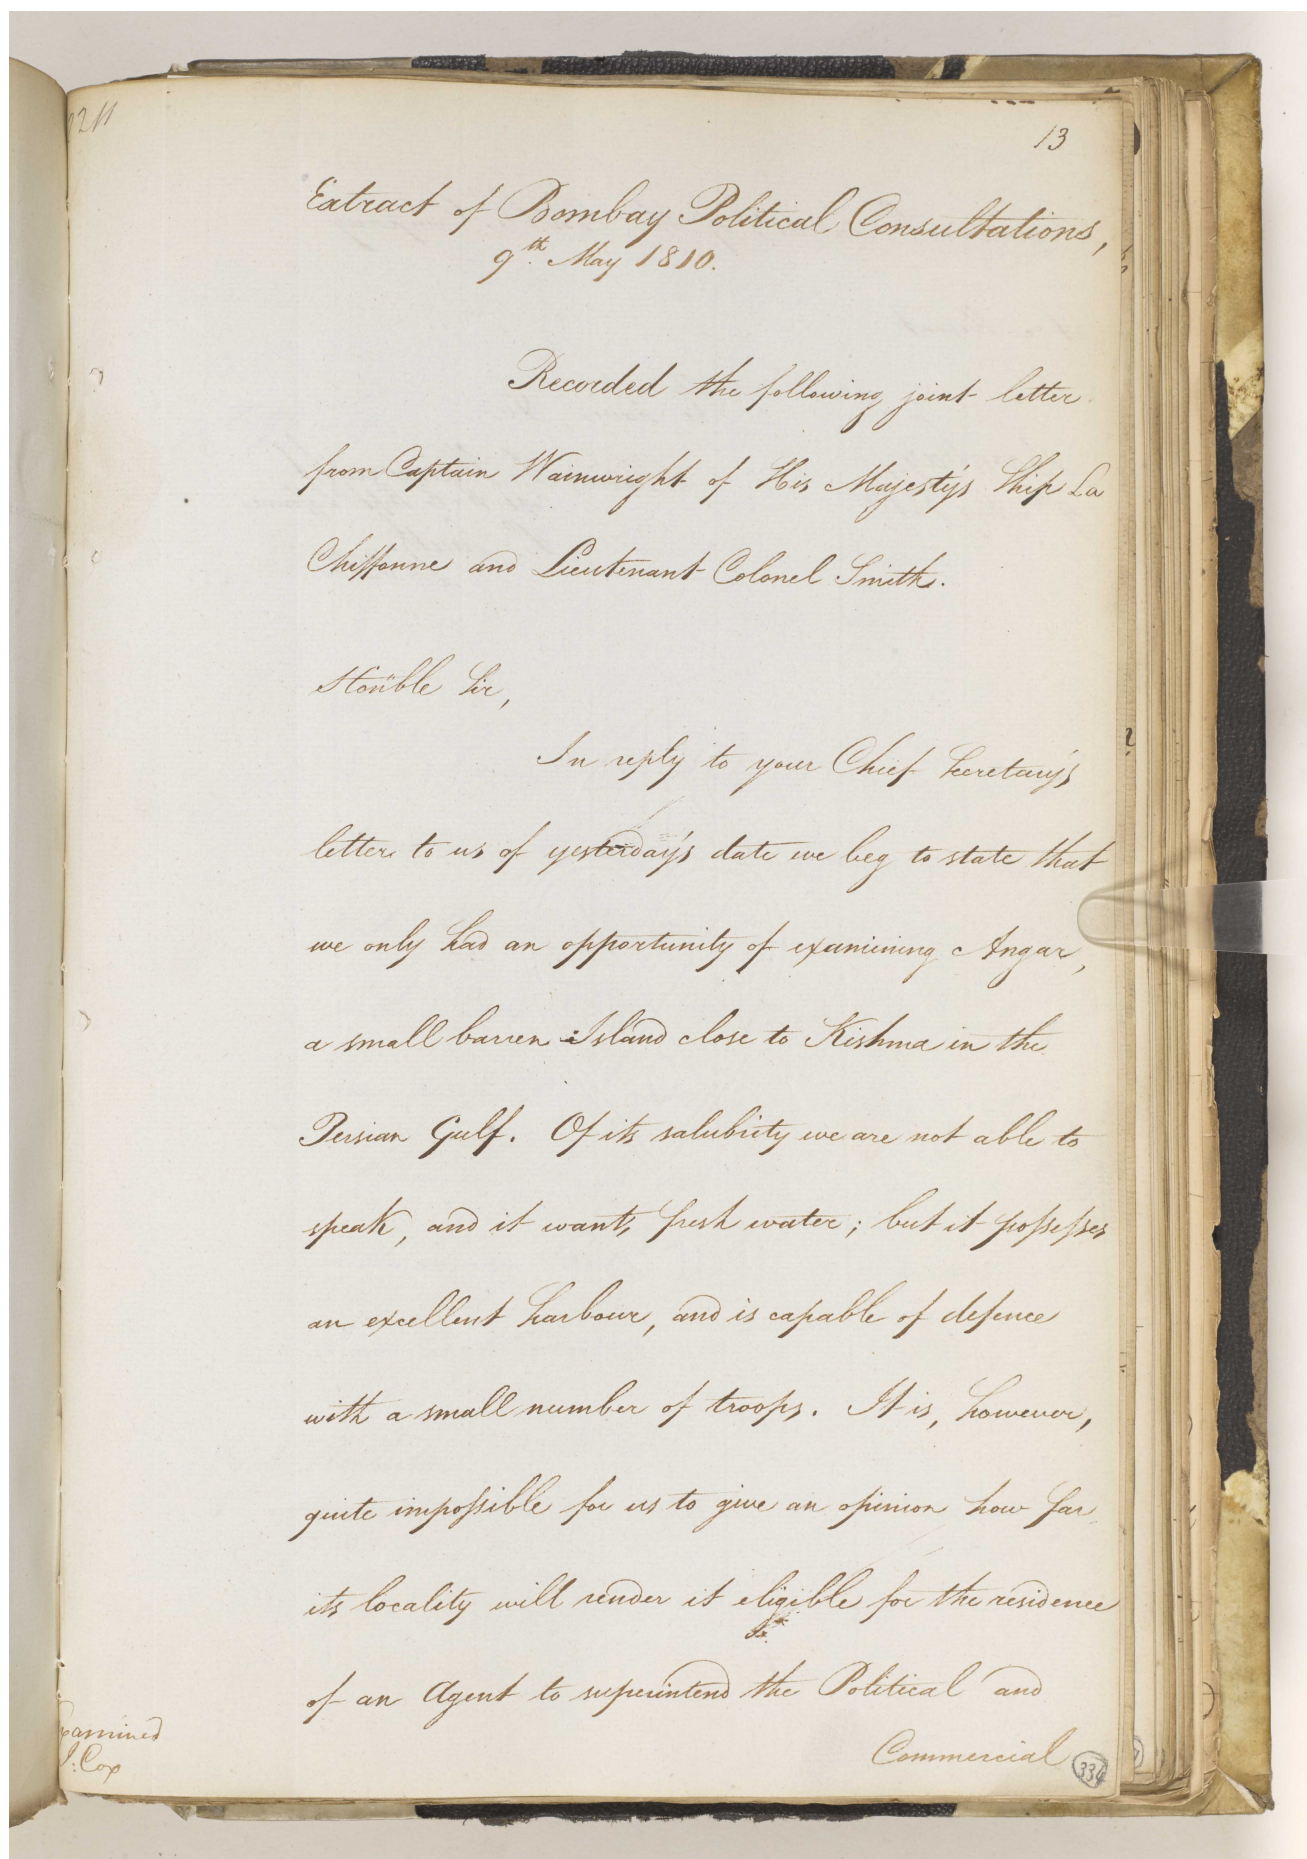 13
Extract of Bombay Political Consultations,
9th. May 1810.
Recorded the following joint letter
from Captain Wainwright of His Majesty's Ship La
Chiffonne and Lieutenant Colonel Smith.
Hon'ble Sir,
In reply to your Chief Secretary's
letter to us of yesterday's date we beg to state that
we only had an opportunity of examining Angar,
a small barren Island close to Kishma in the
Persian Gulf. Of its salubrity we are not able to
speak, and it wants fresh water; but it possesses
an excellent harbour, and is capable of defence
with a small number of troops. It is, however,
quite impossible for us to give an opinion how far
its locality will render it eligible for the residence
of an Agent to superintend the Political and
Commercial
334
J: Cox